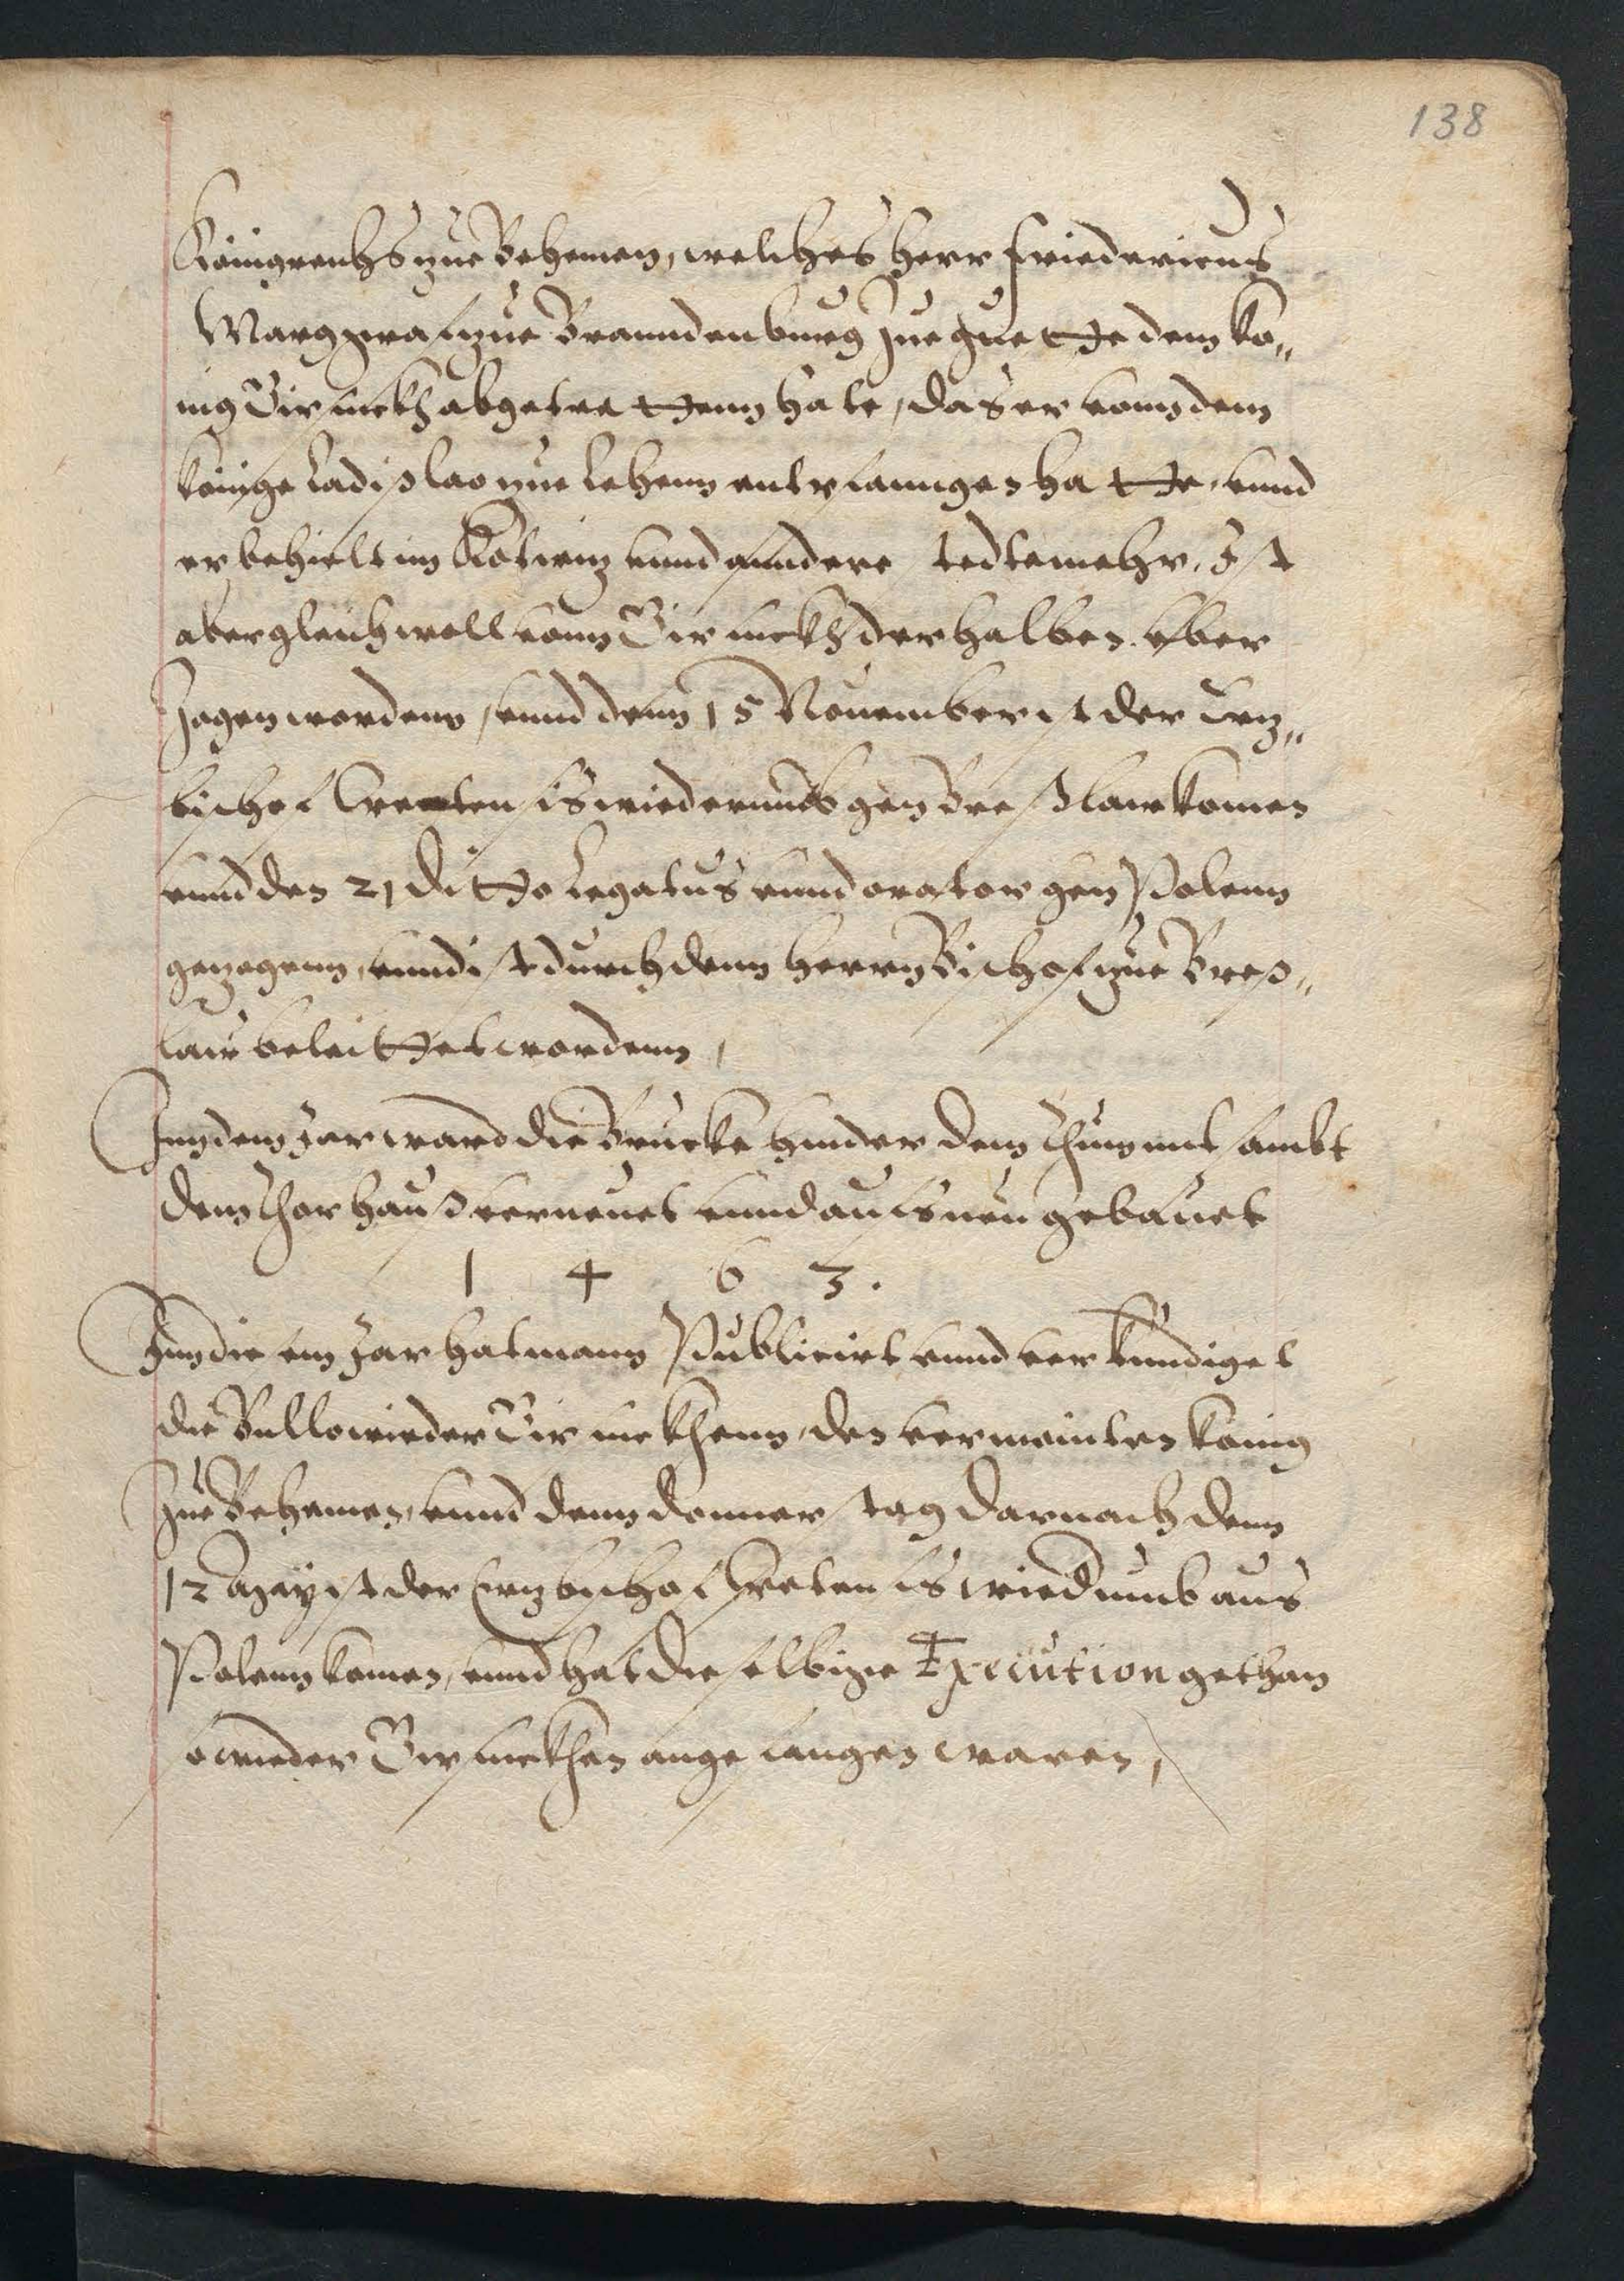 138
Königreichs zue Behemen, welches herr Friedericus
Marggraf zue Branndenburg zue guette dem Kö„
nig Girsickh abgetrettenn hate, das er vonn dem
Könige Ladißlao zue Lehenn entpfanngen hatte, vnnd
er behielt im Kotwiz vnnd anndere stedte mehr, Ist
aber gleichwoll vonn Girsickh derhalben vber
zogen worden, vnnd denn 15 November ist der Erz„
bischof Cretensis wiederumb gen Breßlaw komen
vnnd den 21 ditto Legatus vnnd orator gen Polenn
gezogenn, vnnd ist durch denn herrn Bischof zue Breß„
law beleittet wordenn,
Inn dem Jar ward die Brucke hinder dem Thum mit sambt
dem Thorhauß verneuet vnnd aufs neu gebauet
1 4 6 3.
Inn diesem Jar hat mann Publicirt vnnd verkundiget
die Bulle wieder Girsickhenn, den vermeinten König
zue Behemen, vnnd denn donnerstag darnach denn
12 May ist der Erzbischof Cretensis wiedrumb aus
Polenn komen, vnnd hat dieselbige Execution gethan
so wieder Girsickhen angefangen waren,